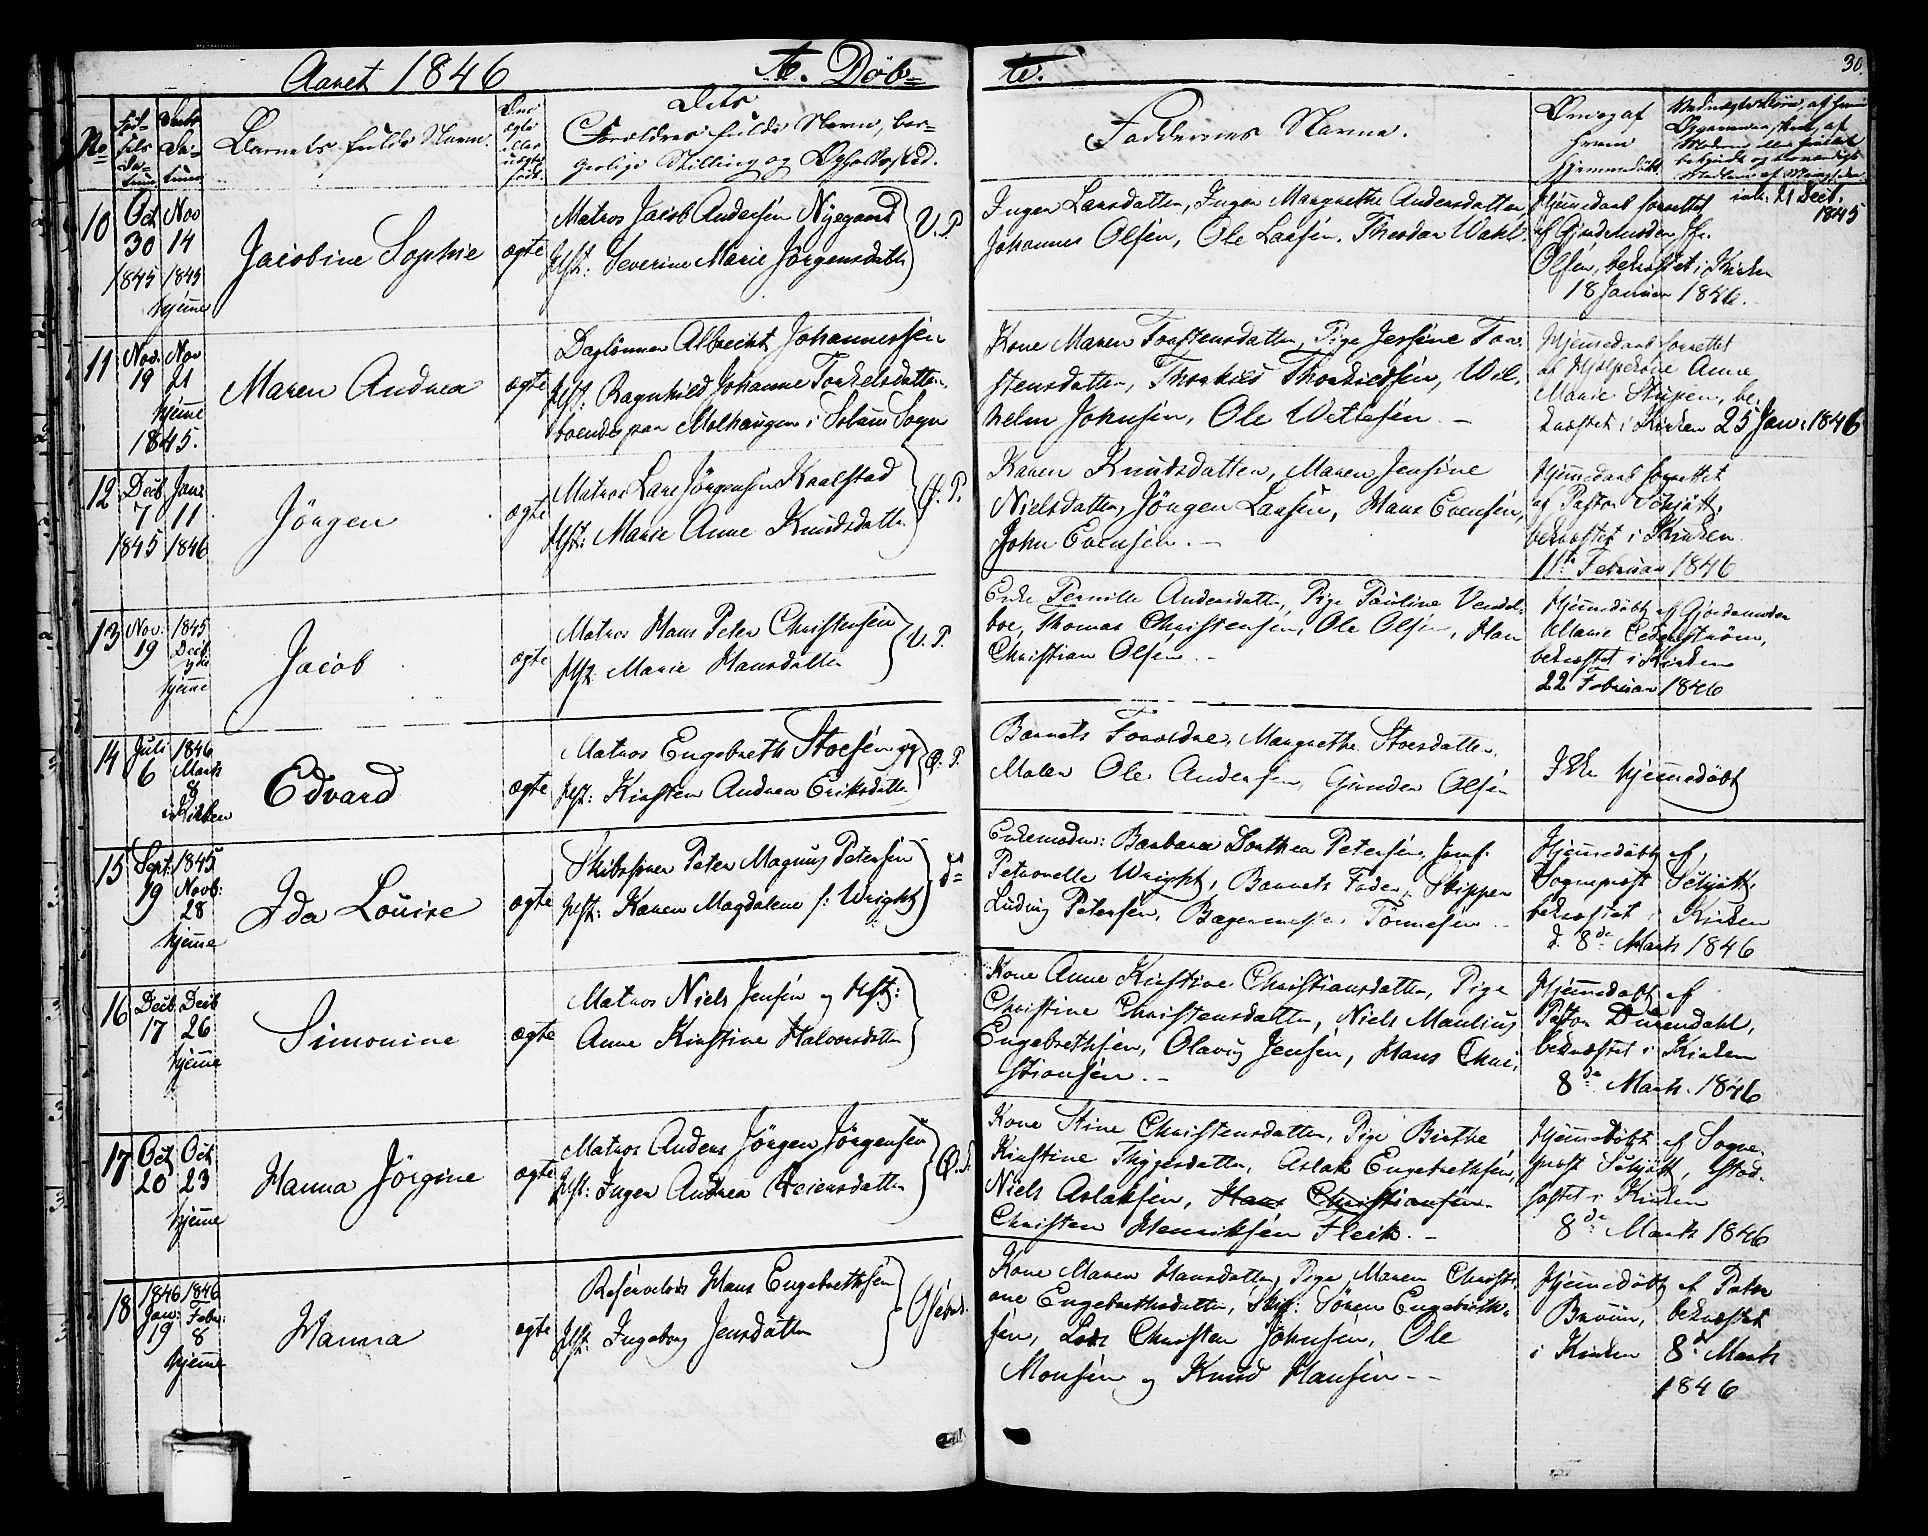 Aaret 1846 A. Døb=
te.
30.
No
Fød-
sels
Da-
tum
Daabs
Da-
tum
Barnets fulde Navn.
Om
ægte
eller
uægte
født.
Dets
Forældres fulde Navn, bor-
gerlige Stilling og Opholdssted.
Faddernes Navne.
Om og af
hvem
hjemmedøbt.
10
Oct
30
1845
Nov
14
1845
hjemme
Jacobine Sophie
ægte
Matros Jacob Andersen Nyegaard
Hst: Severine Marie Jørgensdatter
V. P.
Inger Larsdatter, Inger Margrethe Andersdatter,
Johannes Olsen, Ole Larsen, Theodor Wahl
Hjemmedaab forrettet
af Gjordemoder Fr.
Olsen, bekræftet i Kirken
18 Januar 1846.
intr. 21 Decb.
1845
11
Nov.
19
Nov
21
hjemme
1845.
Maren Andrea
ægte
Dagleonner Albrecht Johannessen
Hst: Ragnhild Johanne Torkelsdatter,
boende paa Molhaugen i Solum Sogn
Kone Maren Torstensdatter, Pige Jensine Tor-
stensdatter, Thorkild Thorkildsen, Wil-
helm Johnsen, Ole Wetlesen. -
Hjemmedaab forrettet
af Hjelpekone Anne
Marie Stupen, be-
kræftet i Kirken 25 Jan: 1846
12
Decb
7
1845
Janr
11
1846
Jörgen
ægte
Matros Lars Jörgensen Kaalstad
Hst: Marie Anne Knudsdatter
Ø. P.
Karen Knudsdatter, Maren Jensine
Nielsdatter, Jörgen Larsen, Hans Evensen,
John Evensen. -
Hjemmedaab forrettet
af Pastor Schjøtt,
bekræftet i Kirken
11te Februar 1846
13
Nov:
19
1845
Decb:
hjemme
Jacob
ægte
Matros Hans Peter Christensen
Hst: Marie Hansdatter
V. P.
Enke Pernille Andersdatter, Pige Pauline Vendel-
boe, Thomas Christensen, Ole Olsen, Han
Christian Olsen. -
Hjemmedøbt af Gjordemoder
Marie Cederstrøm,
bekræftet i Kirken
22 Februar 1846
14
Juli
6
1846
Marts
8
i Kirken
Edvard
ægte
Matros Engebreth Stoesen og
Hst: Kirsten Andrea Eriksdatter
Ø. P.
Barnets Forældre, Margrethe Stoesdatter,
Maler Ole Andersen, Gunder Olsen
Ikke hjemmedøbt
15
Sept:
19
1845
Novb:
28
hjemme
Ida Louise
ægte
Skibsfører Peter Magnus Petersen
Hst: Karen Magdalene f: Wright
do
Enkemadm: Barbara Dorthea Petersen, Jomf:
Petronelle Wright, Barnets Fader, Skipper
Ludvig Petersen, Bagermester Tönnesen. -
Hjemmedøbt af
Sogneprest Schjøtt,
bekræftet i Kirken
d. 8de Marts 1846
16
Decb
17
Decb
26
hjemme
Simonine
ægte
Matros Niels Jensen og Hst:
Anne Kirstine Halvorsdatter
Kone Anne Kirstine Christiansdatter, Pige
Christine Christensdatter, Niels Maulius
Engebrethsen, Olavus Jensen, Hans Chri-
stiansen. -
Hjemmedøbt af
Pastor Durendahl,
bekræftet i Kirken
8de Marts 1846
17
Oct
20
Oct
23
hjemme
Hanna Jörgine
ægte
Matros Anders Jörgen Jörgensen
Hst: Inger Andrea Heiersdatter
Kone Stine Christensdatter, Pige Birthe
Kirstine Thygesdatter, Aslak Engebrethsen,
Niels Aslaksen, Hans Christiansen.
Christen Henriksen Fleik. -
Hjemmedøbt af Sogne-
prest Schjøtt, Stad-
fæstet i Kirken
8de Marts 1846
18
1846
Jan:
19
1846
Febr:
8
hjemme
Hanna
ægte
Reservelods Hans Engebrethsen
Hst: Ingeborg Jensdatter
Kone Maren Hansdatter, Pige Maren Christi-
ane Engebrethsdatter, Skip: Sören Engebreth-
sen, Lods Christen Johnsen, Ole
Monsen og Knud Hansen - -
Hjemmedøbt af Pastor
Bruun, bekræftet
i Kirken 8de Marts
1846